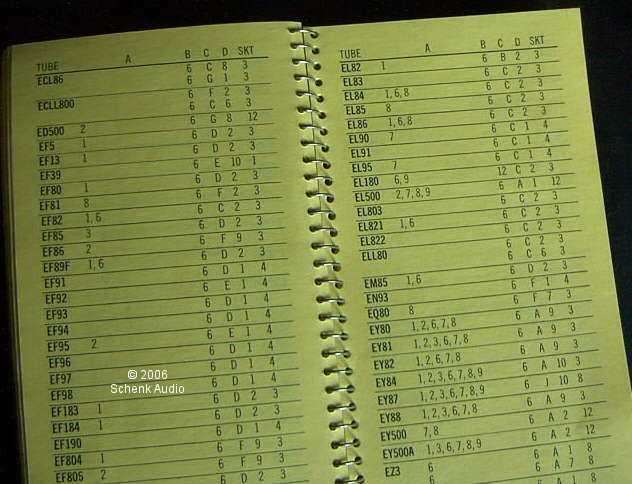 TUBE A B C D SKT
ECL86 6 C 8 3
6 G 1 3
ECLL800 6 F 2 3
6 C 6 3
ED500 2 6 G 8 12
EF5 1 6 D 2 3
EF13 1 6 D 2 3
EF39 6 E 10 1
EF80 1 6 D 2 3
EF81 8 6 F 2 3
EF82 1, 6 6 C 2 3
EF85 3 6 D 2 3
EF86 2 6 F 9 3
EF89F 1, 6 6 D 2 3
EF91 6 D 1 4
EF92 6 E 1 4
EF93 6 D 1 4
EF94 6 D 1 4
EF95 2 6 E 1 4
EF96 6 D 1 4
EF97 6 D 1 4
EF98 6 D 1 4
EF183 1 6 D 2 3
EF184 1 6 D 2 3
EF190 6 D 1 4
EF804 1 6 F 9 3
EF805 2 6 F 9 3
6 D 2 3
© 2006
Schenk Audio
TUBE A B C D SKT
EL82 1 6 B 2 3
EL83 6 C 2 3
EL84 1, 6, 8 6 C 2 3
EL85 8 6 C 2 3
EL86 1, 6, 8 6 C 2 3
EL90 7 6 C 1 4
EL91 6 C 1 4
EL95 7 6 C 1 4
EL180 6, 9 12 C 2 3
EL500 2, 7, 8, 9 6 A 1 12
EL803 6 C 2 3
EL821 1, 6 6 C 2 3
EL822 6 C 2 3
ELL80 6 C 2 3
6 C 6 3
EM85 1, 6 6 D 2 3
EN93 6 F 1 4
EQ80 8 6 F 7 3
EY80 1, 2, 6, 7, 8 6 A 9 3
EY81 1, 2, 3, 6, 7, 8 6 A 9 3
EY82 1, 2, 6, 7, 8 6 A 9 3
EY84 1, 2, 3, 6, 7, 8, 9 6 A 10 3
EY87 1, 2, 3, 6, 7, 8, 9 6 J 10 8
EY88 1, 2, 3, 6, 7, 8 6 A 9 3
EY500 7, 8 6 A 2 12
EY500A 1, 3, 6, 7, 8, 9 6 A 2 12
EZ3 6 6 A 1 8
6 6 A 7 8
6 A 1 8